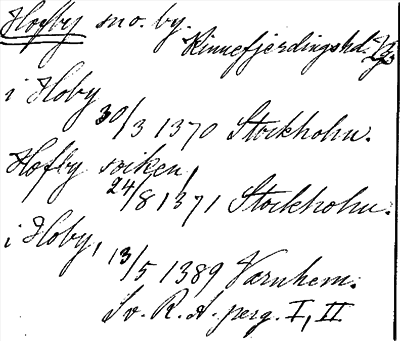 Hofby sno. by.
Kinnefjerdingshd. Vg.
i Hoby
30/3 1370 Stockholm.
Hofby soiken,
24/8 1371 Stockholm.
i Hoby,
13/5 1389 Varnhem.
Sv. R. A. perg. I, II